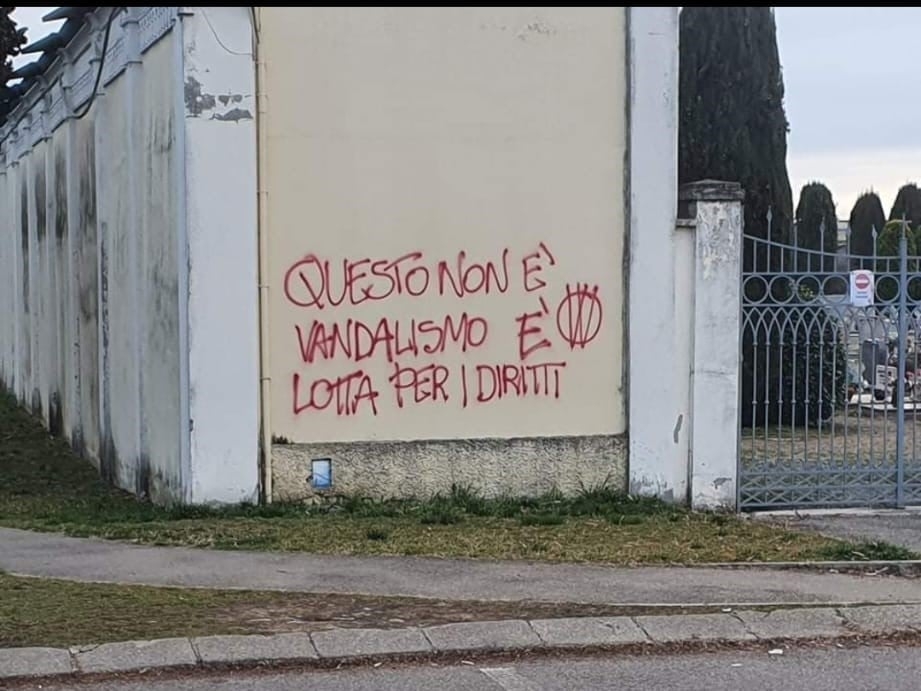 QUESTO NON È
VANDALISMO È
LOTTA PER I DIRITTI